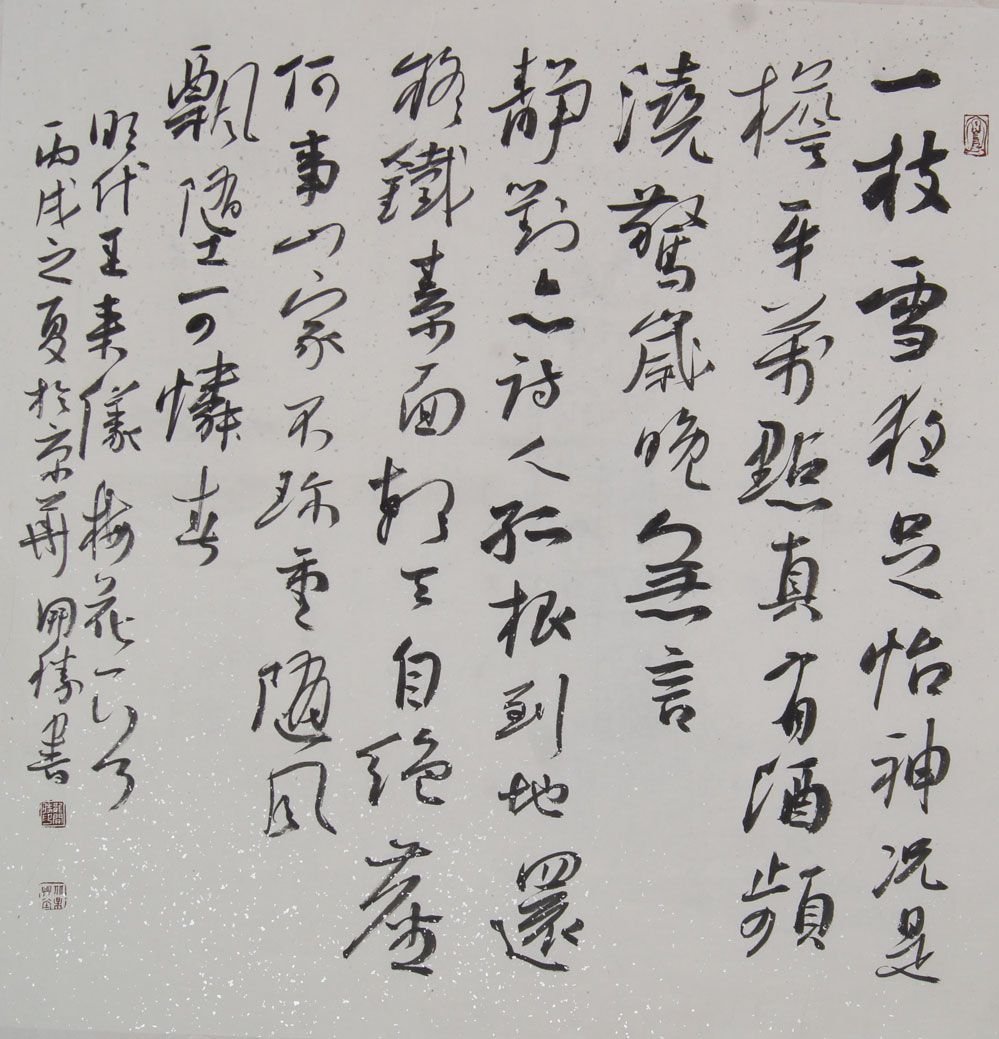 一枝雪足怡神况是
檐牙萬點真有酒頻
澆驚歲晚無言
靜對亦詩人孤根到地還
鐵素面朝天自絕塵
何事山家不珍重隨風
飄墮一可憐春
明代王來儀梅花一首
丙戌之夏於京華開勝書